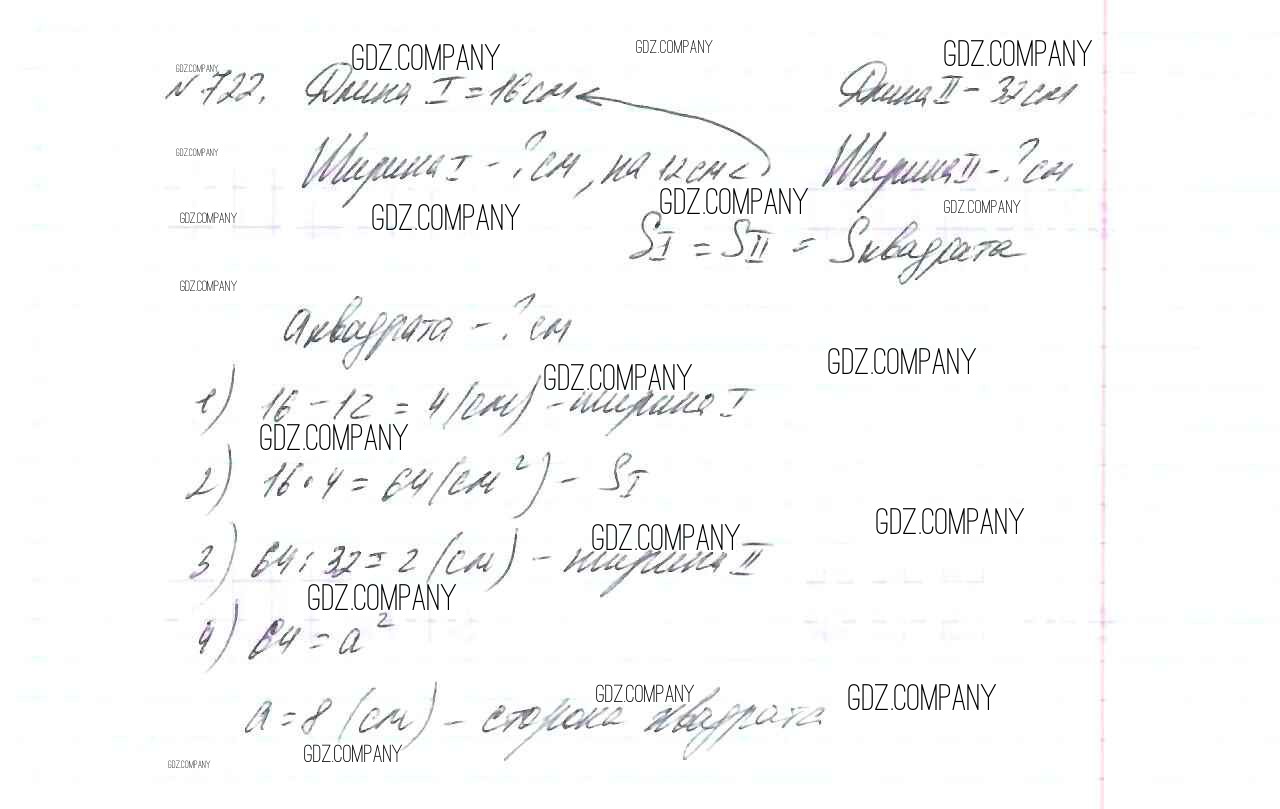 GDZ.COMPANY
GDZ.COMPANY GDZ.COMPANY
GDZ.COMPANY
№ 722. Длина I = 16 см Длина II - 32 см
GDZ.COMPANY
Ширина I - ? см, на 12 см < Ширина II - ? см
GDZ.COMPANY GDZ.COMPANY
GDZ.COMPANY GDZ.COMPANY
SI = SII = Sквадрата
GDZ.COMPANY
aквадрата - ? см
GDZ.COMPANY
GDZ.COMPANY
1) 16 - 12 = 4 (см) - ширина I
GDZ.COMPANY
2) 16 · 4 = 64 (см²) - SI
GDZ.COMPANY
GDZ.COMPANY
3) 64 : 32 = 2 (см) - ширина II
GDZ.COMPANY
4) 64 = a²
GDZ.COMPANY GDZ.COMPANY
a = 8 (см) - сторона квадрата
GDZ.COMPANY
GDZ.COMPANY